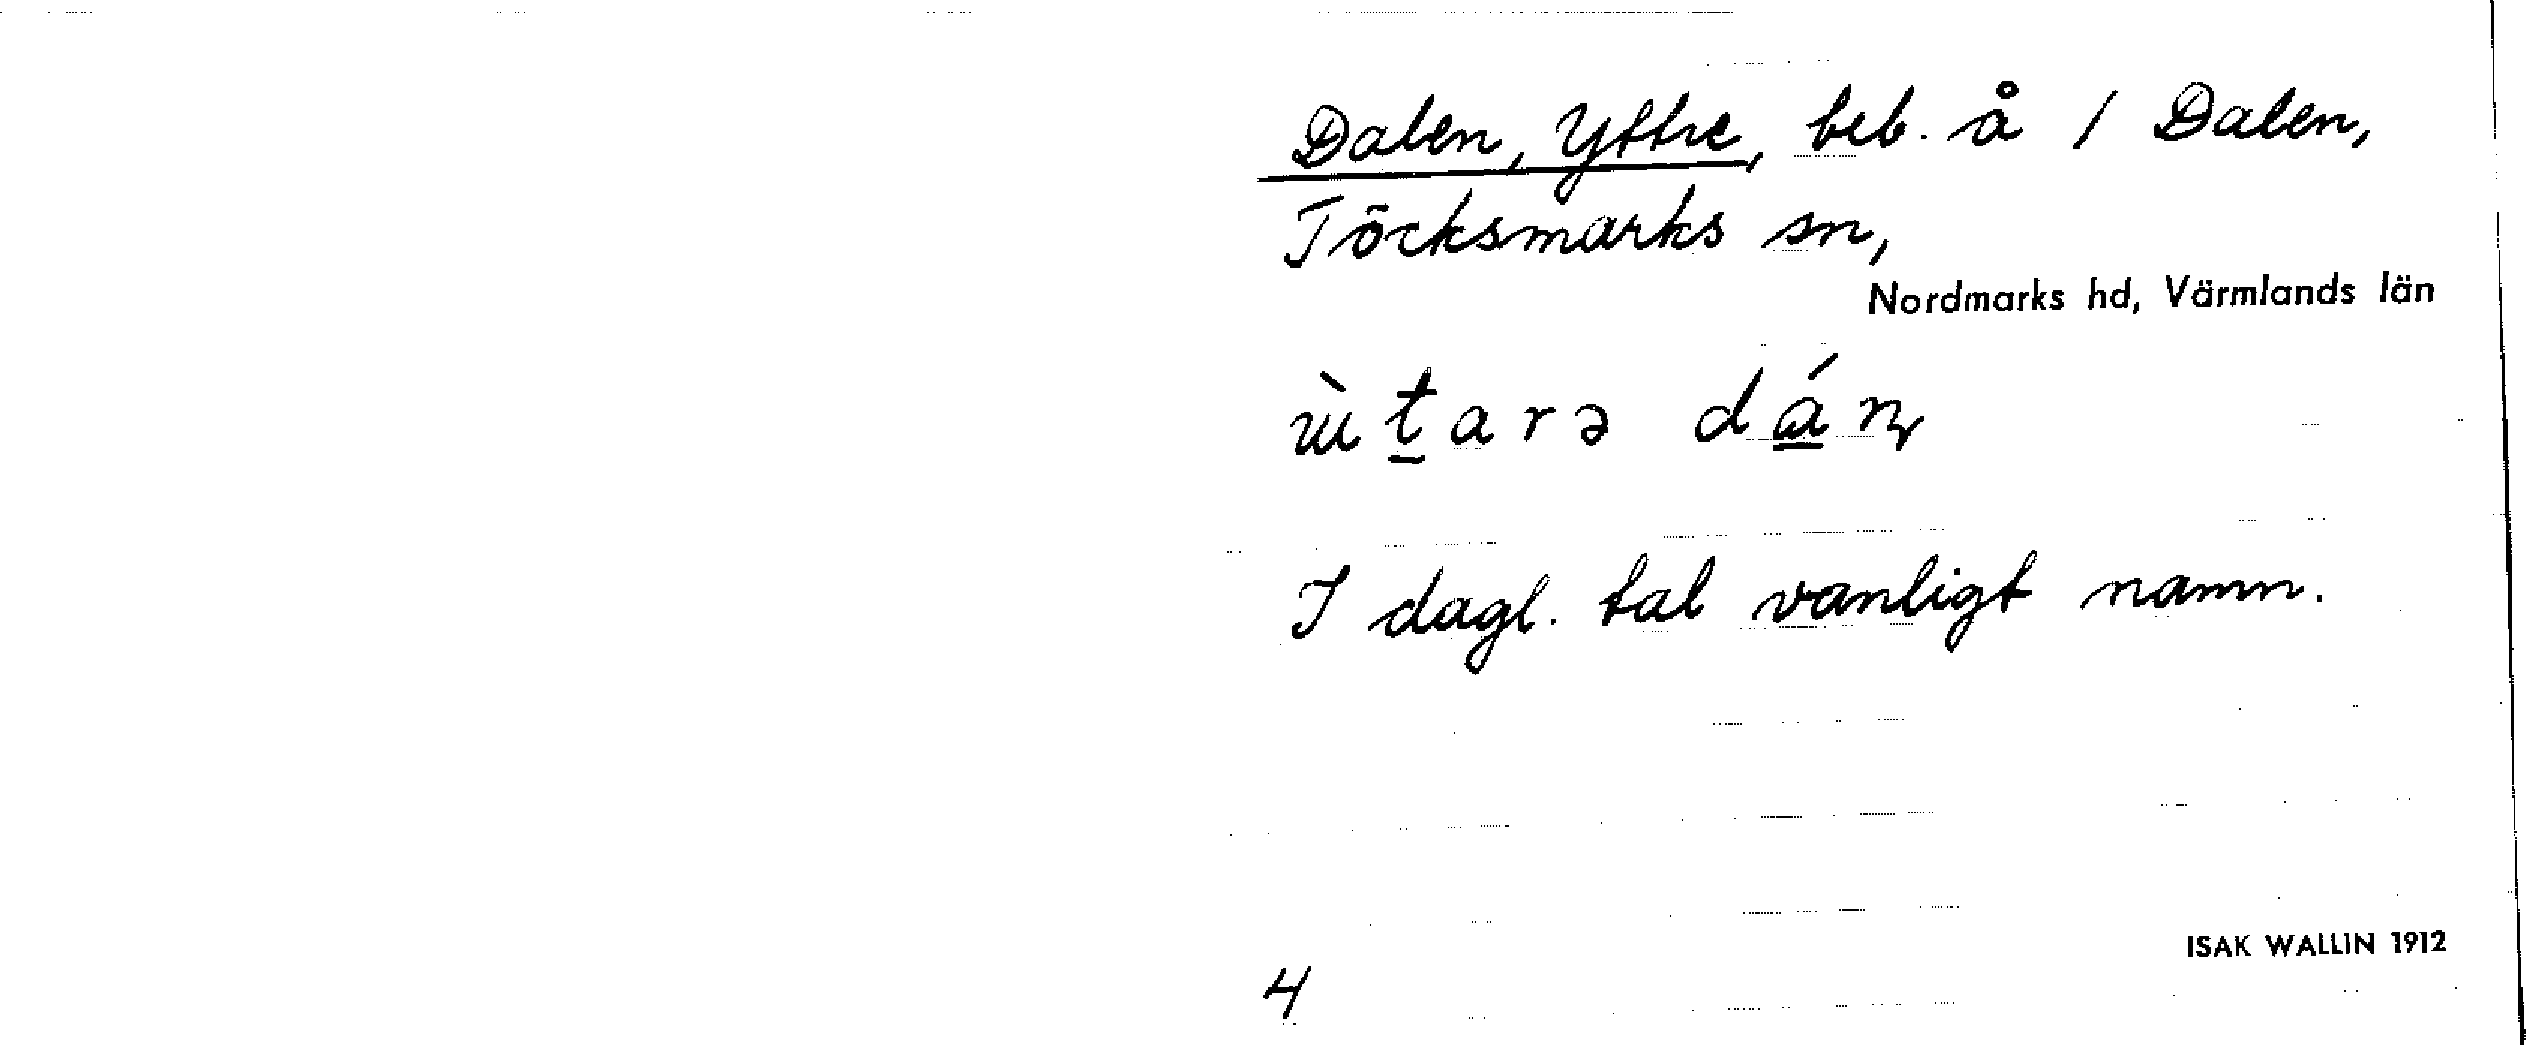 Dalen, Yttre, beb. å 1 Dalen,
Töcksmarks sn,
Nordmarks hd, Värmlands län
I dagl. tal vanligt namn.
ISAK WALLIN 1912
4